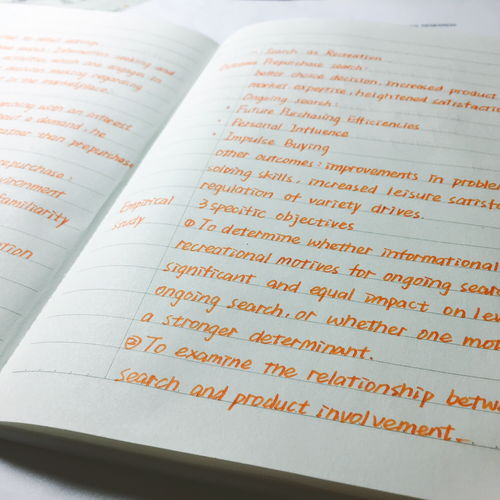 to avoid eating.
Information making and
activities which are engaged in
decision making regarding
in the marketplace.
with an interest
a demand; he
rather than prepurchase
prepurchase:
environment
familiarity
Search as Recreation
Outcome Prepurchase search:
better choice decision, increased product
market expertise, heightened satisfact
Ongoing search:
• Future Purchasing Efficiencies
• Personal Influence
• Impulse Buying
other outcomes: improvements in problem
solving skills, increased leisure satisfa
regulation of variety drives.
Empirical
study
3 specific objectives
① To determine whether informational
recreational motives for ongoing sear
significant and equal impact on lev
ongoing search, or whether one mot
a stronger determinant.
② To examine the relationship betwe
search and product involvement.